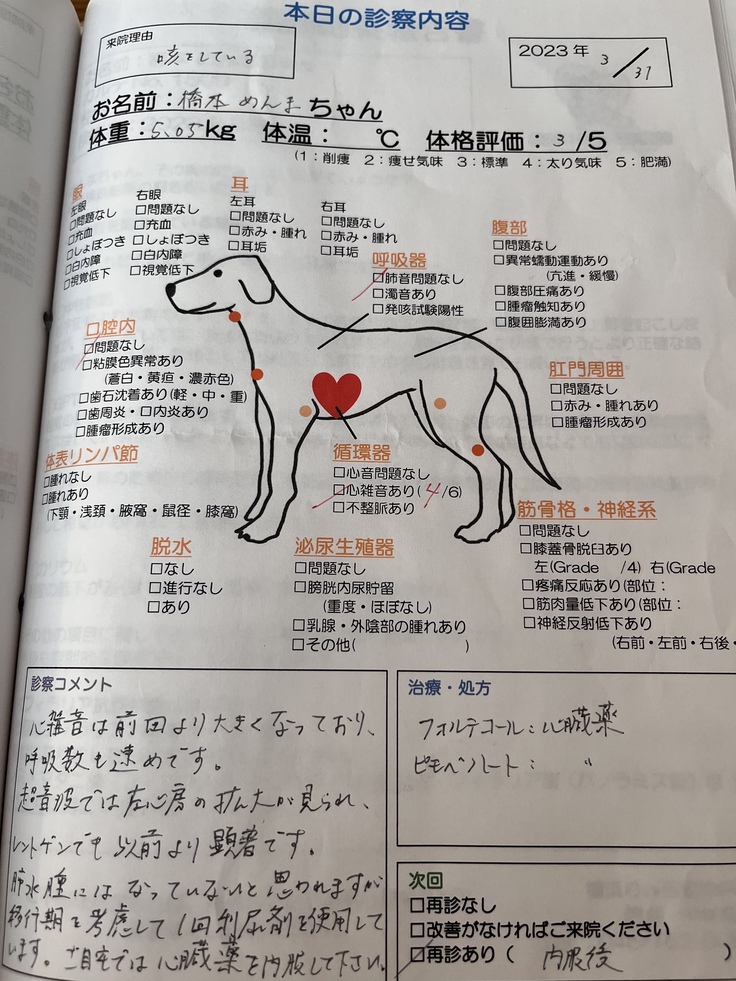 本日の診察内容
来院理由
咳をしている
2023年 3/31
お名前:橋本 めんまちゃん
体重:5.05kg 体温: ℃ 体格評価:3/5
(1:削痩 2:痩せ気味 3:標準 4:太り気味 5:肥満)
眼
左眼
□問題なし
□充血
□しょぼつき
□白内障
□視覚低下
右眼
□問題なし
□充血
□しょぼつき
□白内障
□視覚低下
耳
左耳
□問題なし
□赤み・腫れ
□耳垢
右耳
□問題なし
□赤み・腫れ
□耳垢
呼吸器
□肺音問題なし
□濁音あり
□発咳試験陽性
腹部
□問題なし
□異常蠕動運動あり
(亢進・緩慢)
□腹部圧痛あり
□腫瘤触知あり
□腹囲膨満あり
口腔内
□問題なし
□粘膜色異常あり
(蒼白・黄疸・濃赤色)
□歯石沈着あり(軽・中・重)
□歯周炎・口内炎あり
□腫瘤形成あり
肛門周囲
□問題なし
□赤み・腫れあり
□腫瘤形成あり
体表リンパ節
□腫れなし
□腫れあり
(下顎・浅頚・腋窩・鼠径・膝窩)
循環器
□心音問題なし
□心雑音あり(4/6)
□不整脈あり
筋骨格・神経系
□問題なし
□膝蓋骨脱臼あり
左(Grade /4) 右(Grade
□疼痛反応あり(部位:
□筋肉量低下あり(部位:
□神経反射低下あり
(右前・左前・右後・
脱水
□なし
□進行なし
□あり
泌尿生殖器
□問題なし
□膀胱内尿貯留
(重度・ほぼなし)
□乳腺・外陰部の腫れあり
□その他( )
診察コメント
心雑音は前回より大きくなっており、
呼吸数も速めです。
超音波では左心房の拡大が見られ、
レントゲンでも以前より顕著です。
肺水腫にはなっていないと思われますが
移行期を考慮して1回利尿剤を使用して
います。ご自宅では心臓薬を内服して下さい。
治療・処方
フォルテコール:心臓薬
ピモベハート: 〃
次回
□再診なし
□改善がなければご来院ください
□再診あり( 内服後 )